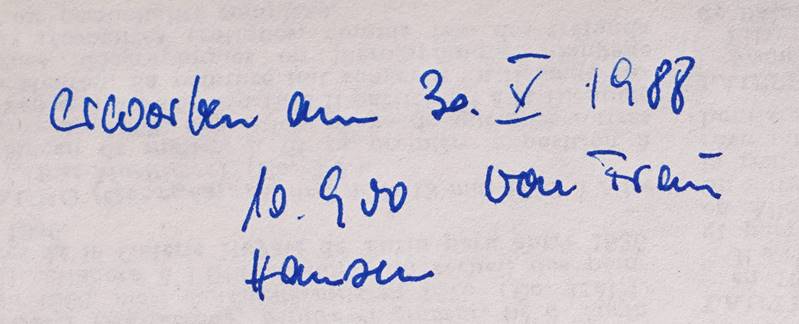 erworben am 30. V 1988
10.900 von Frau
Hansen